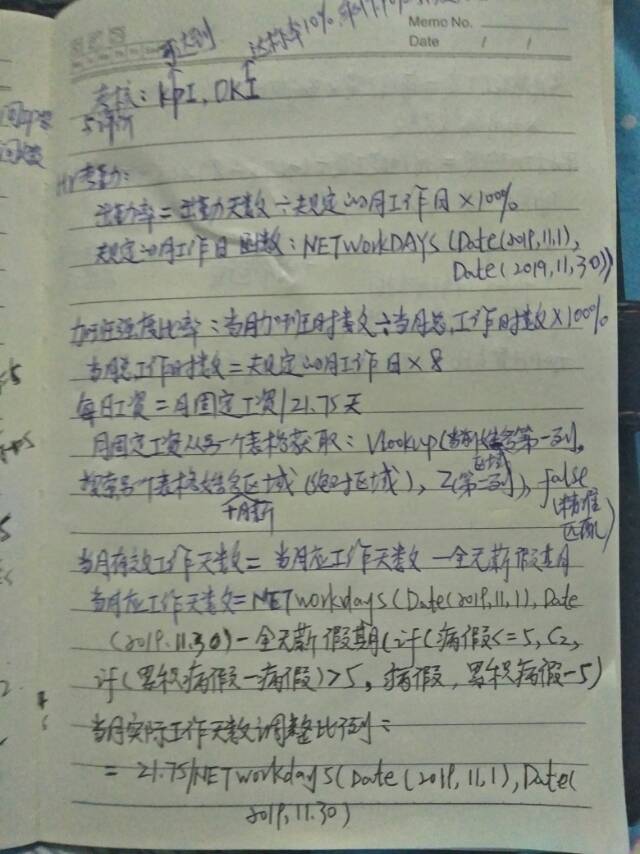 达标率10%
Memo No.
Date / /
未达到
考核：KPI，OKI
Hr考勤：
出勤率＝出勤天数÷规定的月工作日×100%
规定的月工作日函数：NETWorkDAYS（Date(2019,11,1)，
Date（2019,11,30））
加班强度比率：当月加班时数÷当月总工作时数×100%
当月总工作时数＝规定的月工作日×8
每日工资＝月固定工资/21.75天
月固定工资从另一个表格获取：Vlookup（当前姓名第一列，
区域
搜索另一个表格姓名区域（绝对区域），2（第二列），false
＋月薪
（精准
匹配）
当月有效工作天数＝当月应工作天数－全无薪假期
当月应工作天数＝NETworkdays（Date(2019,11,1)，Date
（2019.11.30）－全无薪假期（if（病假<=5，C2，
if（累积病假－病假）>5，病假，累积病假－5）
当月实际工作天数调整比例：
＝21.75/NETworkdays（Date（2019,11,1)，Date（
2019,11.30）